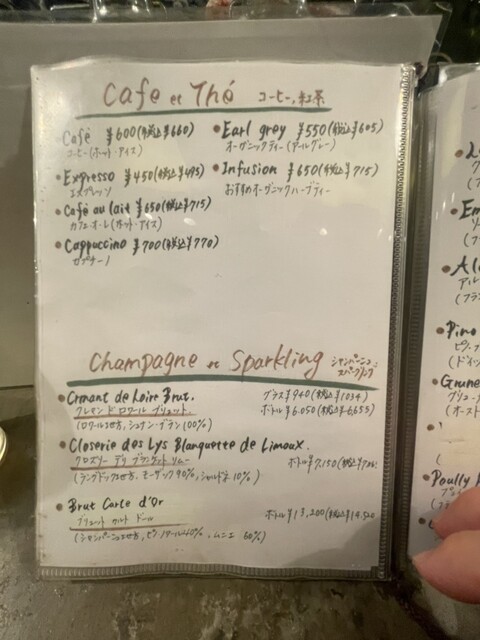 Cafe et Thé コーヒー、紅茶
Café ¥600(税込¥660)
コーヒー(ホット・アイス)
• Expresso ¥450(税込¥495)
エスプレッソ
• Café au lait ¥650(税込¥715)
カフェ・オ・レ(ホット・アイス)
• Cappuccino ¥700(税込¥770)
カプチーノ
• Earl grey ¥550(税込¥605)
オーガニックティー(アールグレー)
• Infusion ¥650(税込¥715)
おすすめオーガニックハーブティー
Champagne et Sparkling シャンパーニュ・
スパークリング
• Crmant de Loire Brut. グラス¥940(税込¥1034)
クレマン ド ロワール ブリュット. ボトル¥6,050(税込¥6,655)
(ロワール地方, シュナン・ブラン 100%)
• Closerie des Lys Blanquette de Limoux.
クロズリー デ リ ブランケット リムー ボトル¥7,150(税込¥
(ラングドック地方, モーザック90%, シャルドネ10%)
• Brut Carte d'Or
ブリュット カルト ドール ボトル¥13,200(税込¥14,520
(シャンパーニュ地方, ピノ・ノワール40%, ムニエ 60%)
• Em
• Al
• Pino
(ドイツ
(オースト
Poully